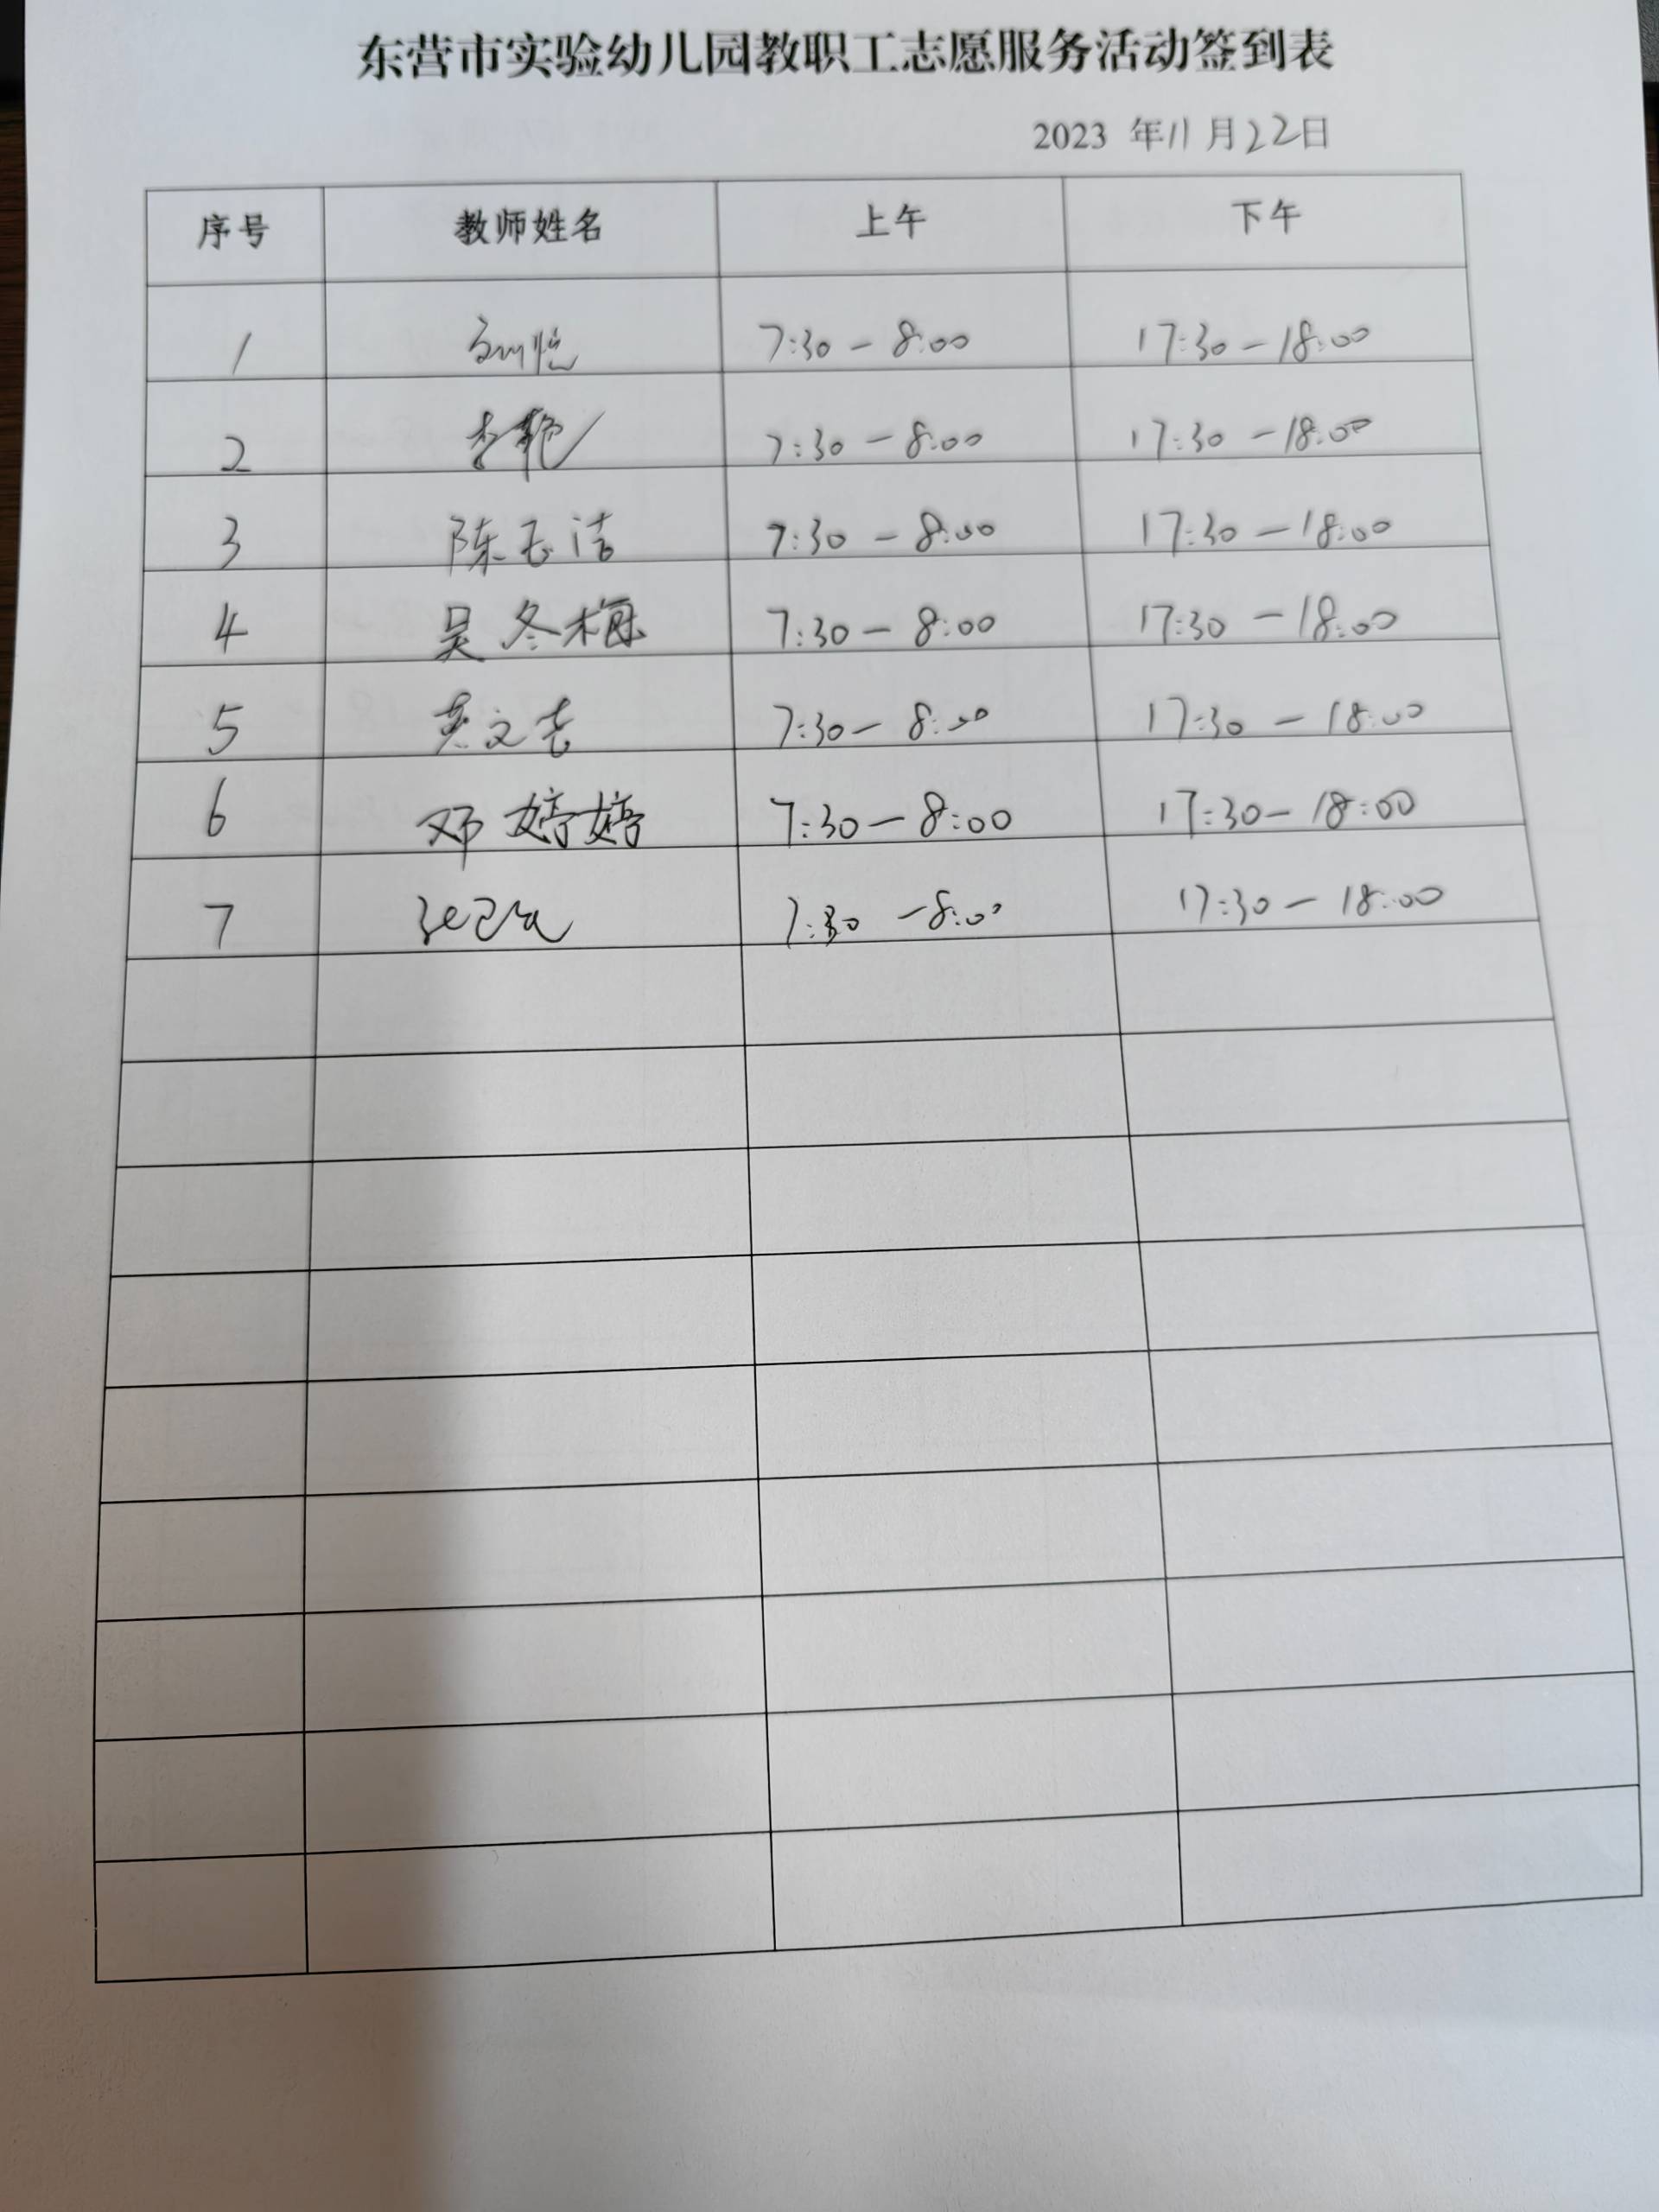 东营市实验幼儿园教职工志愿服务活动签到表
2023 年11月22日
序号 教师姓名 上午 下午
1 7:30-8:00 17:30-18:00
2 李艳 7:30-8:00 17:30-18:00
3 陈玉洁 7:30-8:00 17:30-18:00
4 吴冬梅 7:30-8:00 17:30-18:00
5 7:30-8:00 17:30-18:00
6 邓婷婷 7:30-8:00 17:30-18:00
7 7:30-8:00 17:30-18:00